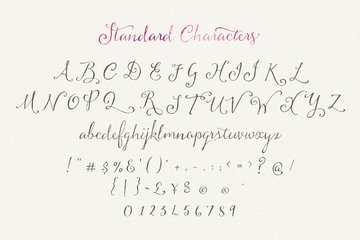 Standard Characters
A B C D E F G H I J K L
M N O P Q R S T U V W X Y Z
abcdefghijklmnopqrstuvwxyz
! " # $ % & ' ( ) * + , - . : ; < = > ? @ /
{ | } ~ £ ¥ $ © ®
0 1 2 3 4 5 6 7 8 9